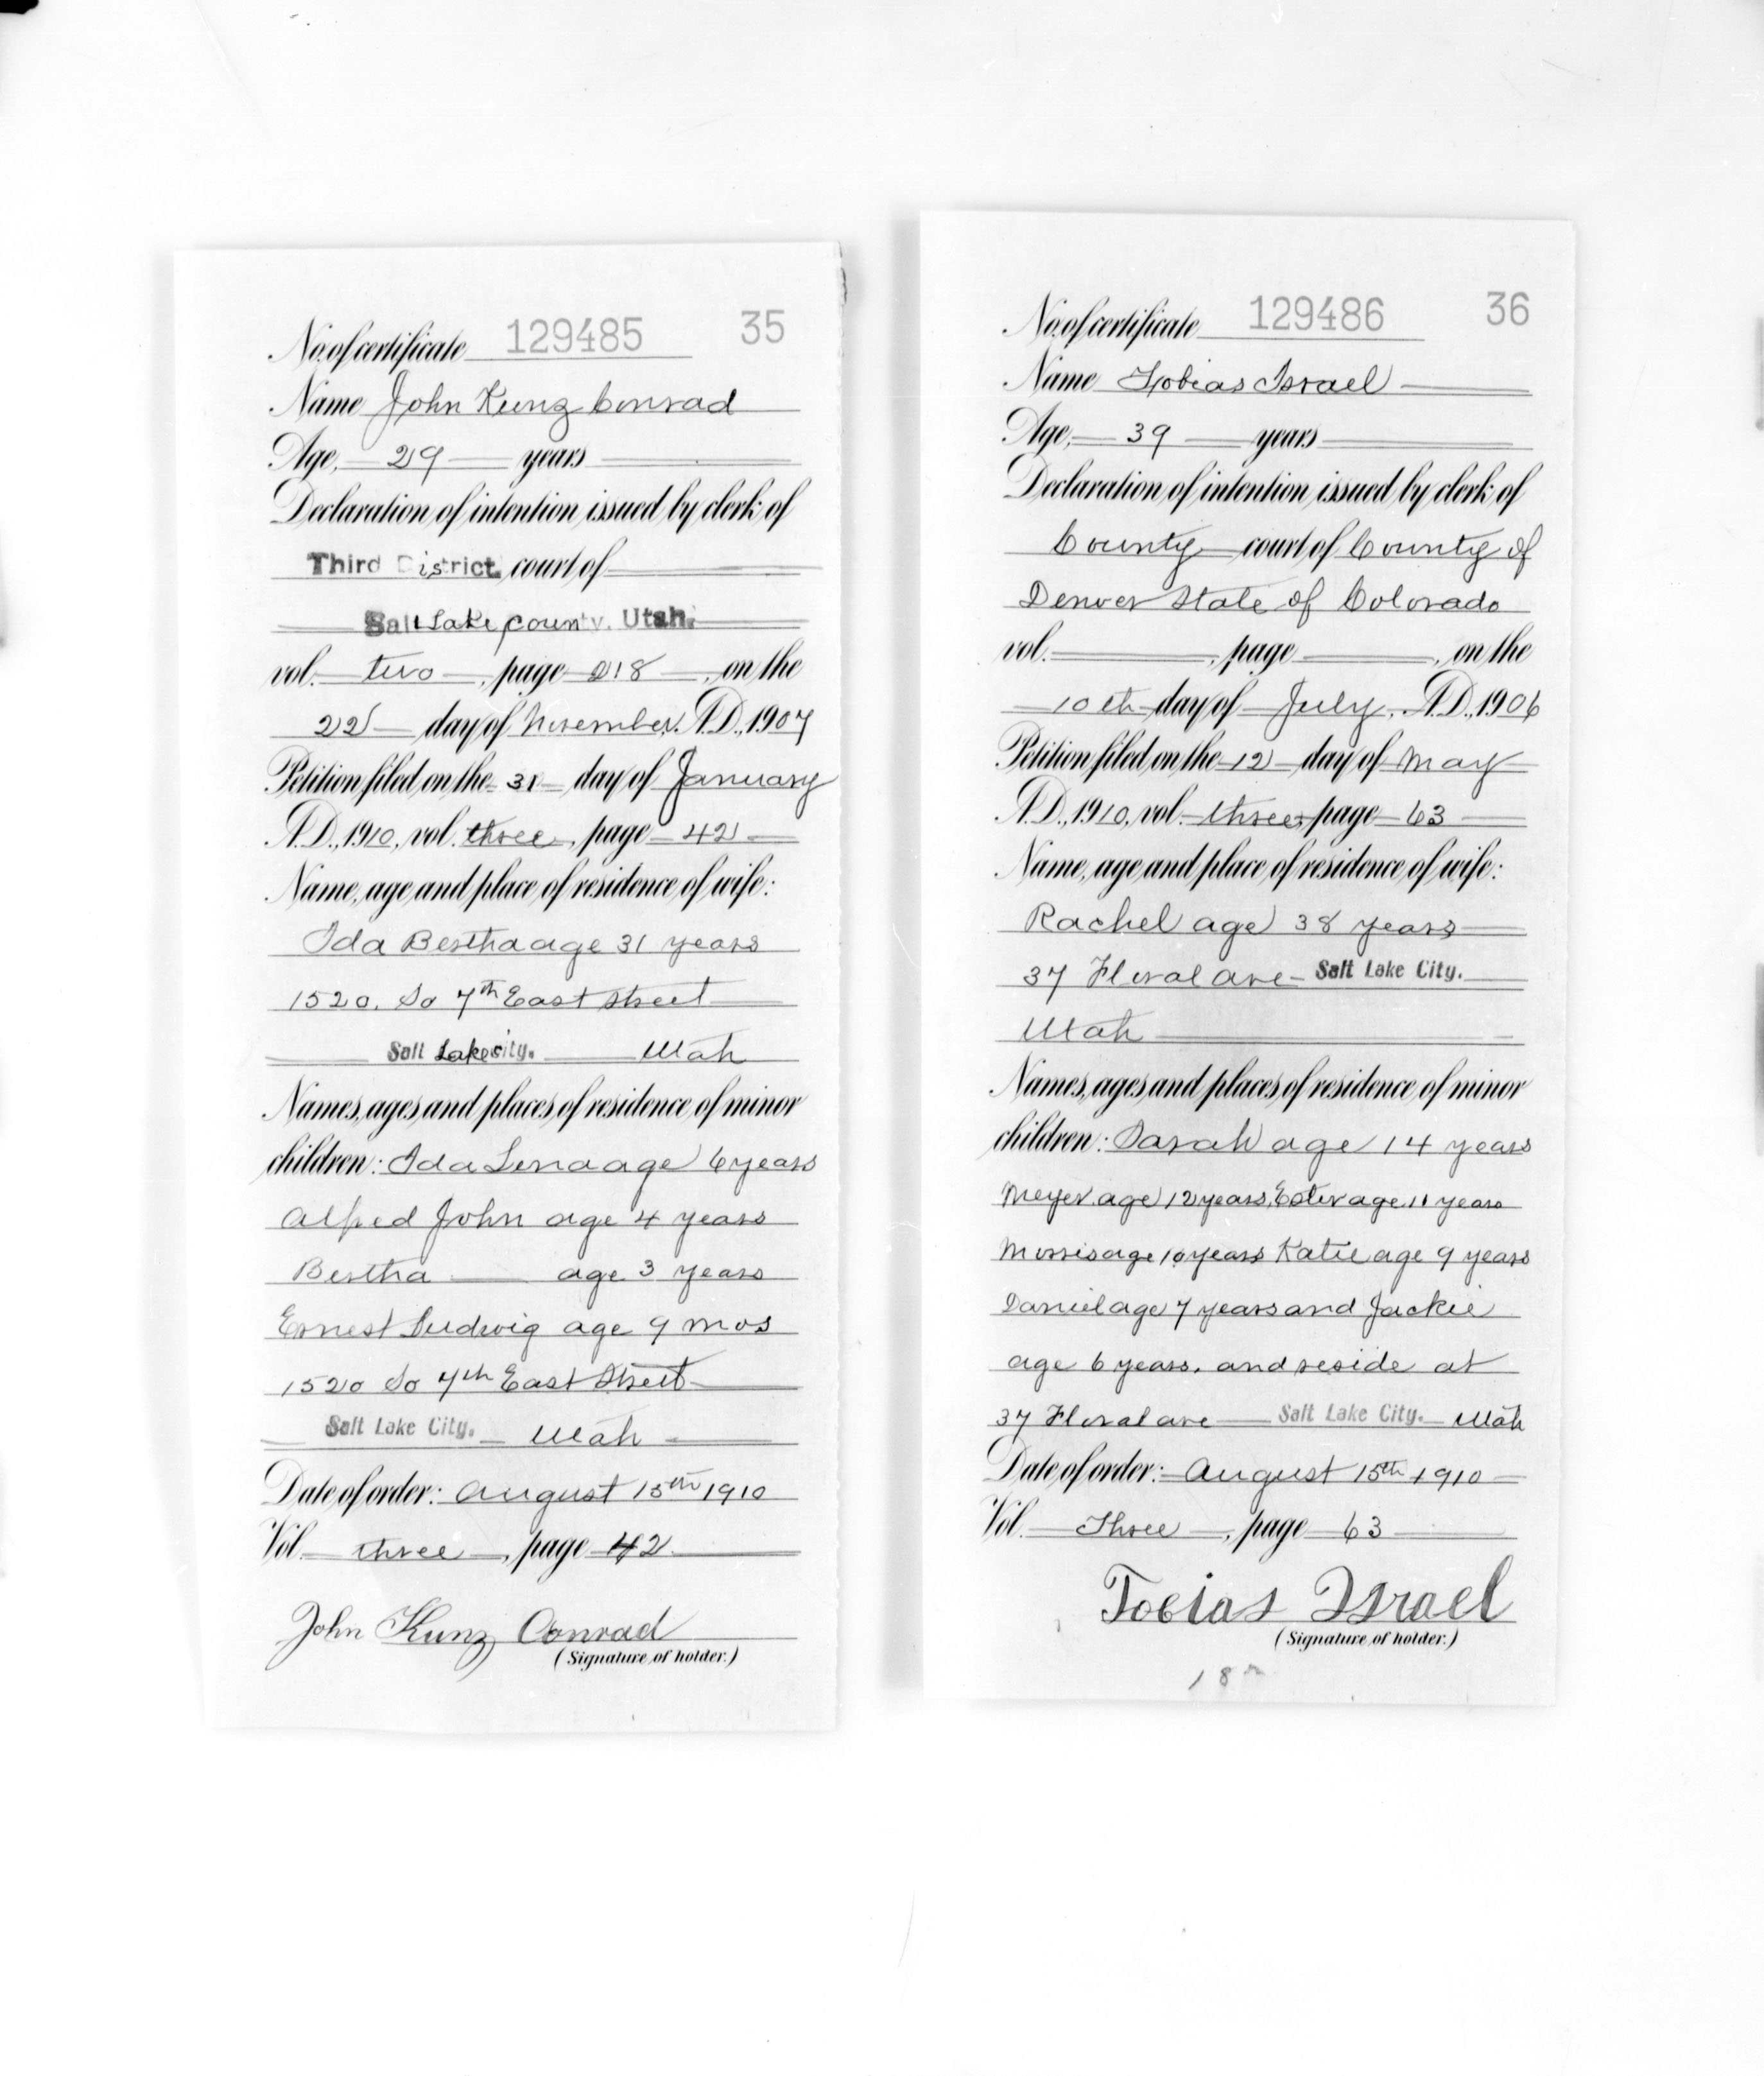 No. of certificate 129485 35
Name John Kunz Conrad
Age, 29 years
Declaration of intention issued by clerk of
Third District court of
Salt Lake County, Utah.
vol. two, page 218, on the
22 day of November, A.D., 1907
Petition filed on the 31 day of January
A.D., 1910, vol. three, page 42
Name, age and place of residence of wife:
Ida Bertha age 31 years
1520. So 7th East Street
Salt Lake City. Utah
Names, ages and places of residence of minor
children: Ida Lena age 6 years
Alfred John age 4 years
Bertha age 3 years
Ernest Ludwig age 9 mos
1520 So 7th East Street
Salt Lake City. Utah
Date of order: August 15th 1910
Vol. three, page 42
John Kunz Conrad
(Signature of holder.)
No. of certificate 129486 36
Name Tobias Israel
Age, 39 years
Declaration of intention issued by clerk of
County court of County of
Denver State of Colorado
vol. , page , on the
10th day of July, A.D., 1906
Petition filed on the 12 day of May
A.D., 1910, vol. three, page 63
Name, age and place of residence of wife:
Rachel age 38 years
37 Floral ave Salt Lake City.
Utah
Names, ages and places of residence of minor
children: Sarah age 14 years
Meyer age 12 years, Ester age 11 years
Morris age 10 years Katie age 9 years
Daniel age 7 years and Jackie
age 6 years, and reside at
37 Floral ave Salt Lake City. Utah
Date of order: August 15th 1910
Vol. Three, page 63
Tobias Israel
(Signature of holder.)